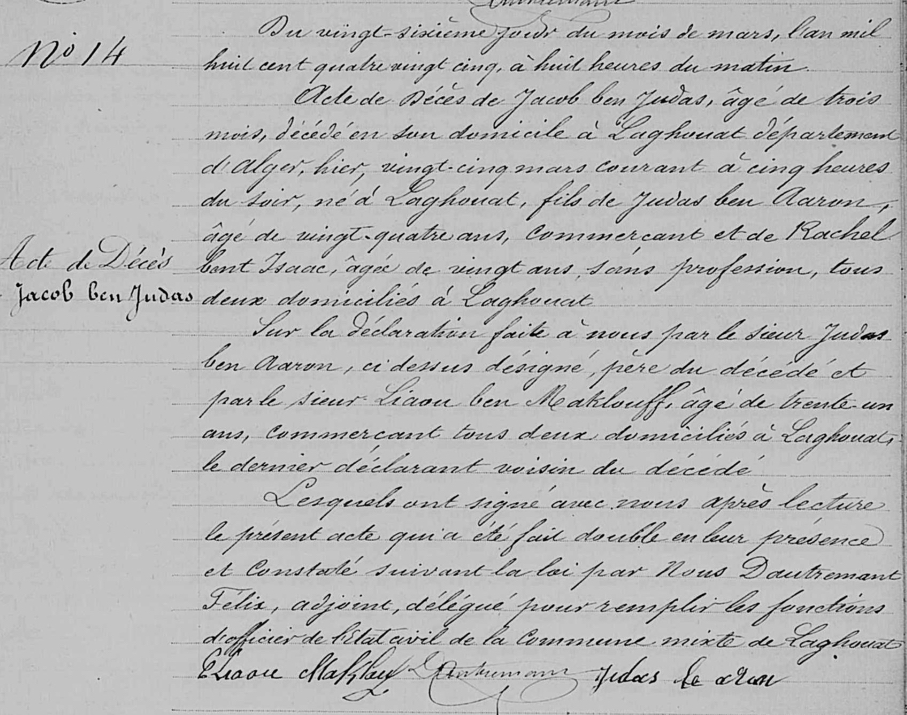 Du vingt-sixième jour du mois de mars, l'an mil
No 14
huit cent quatre vingt cinq, à huit heures du matin.
Acte de Décès de Jacob ben Judas, âgé de trois
mois, décédé en son domicile à Laghouat département
d'Alger, hier, vingt-cinq mars courant à cinq heures
du soir, né à Laghouat, fils de Judas ben Aaron,
âgé de vingt-quatre ans, commercant et de Rachel
Acte de Décès
Jacob ben Judas
bent Isaac, âgée de vingt ans, sans profession, tous
deux domiciliés à Laghouat
Sur la déclaration faite à nous par le sieur Judas
ben Aaron, ci dessus désigné, père du décédé et
par le sieur Liaou ben Maklouff, âgé de trente un
ans, commercant tous deux domiciliés à Laghouat,
le dernier déclarant voisin du décédé
Lesquels ont signé avec nous après lecture
le présent acte qui a été fait double en leur présence
et constaté suivant la loi par Nous Dautremant
Félix, adjoint, délégué pour remplir les fonctions
d'officier de l'Etat civil de la Commune mixte de Laghouat
Judas